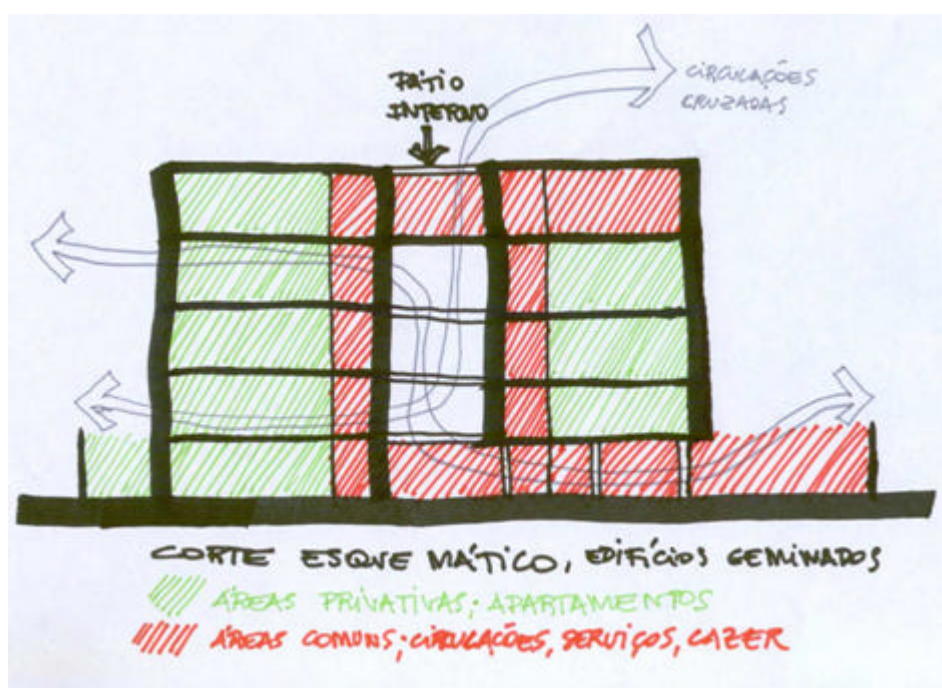 PÁTIO
INTERNO
CIRCULAÇÕES
CRUZADAS
CORTE ESQUEMÁTICO, EDIFÍCIOS GEMINADOS
ÁREAS PRIVATIVAS; APARTAMENTOS
ÁREAS COMUNS; CIRCULAÇÕES, SERVIÇOS, LAZER